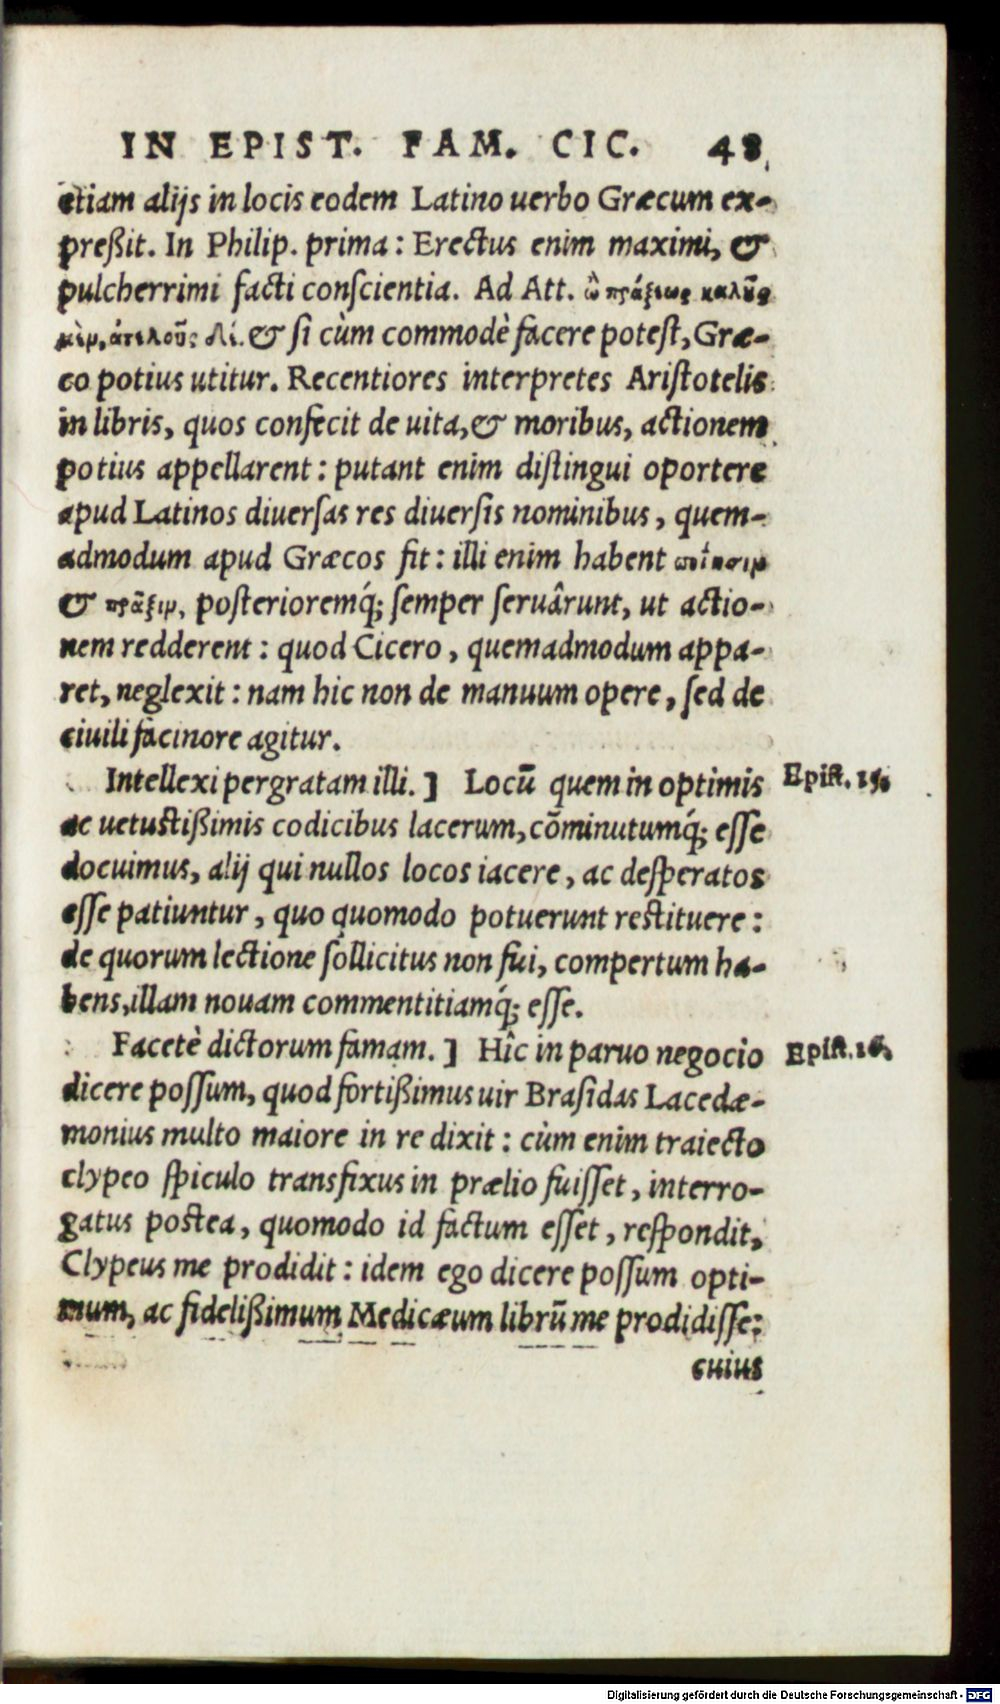 IN EPIST. FAM. CIC. 48
etiam alijs in locis eodem Latino uerbo Græcum ex-
preßit. In Philip. prima: Erectus enim maximi, &
pulcherrimi facti conſcientia. Ad Att. ὢ πράξεως καλῆς
μὲν, ἀτελοῦς δέ. & ſi cùm commodè facere poteſt, Græ-
co potius utitur. Recentiores interpretes Ariſtotelis
in libris, quos confecit de uita, & moribus, actionem
potius appellarent: putant enim diſtingui oportere
apud Latinos diuerſas res diuerſis nominibus, quem-
admodum apud Græcos fit: illi enim habent ποίησιν
& πρᾶξιν, poſterioremq́; ſemper ſeruârunt, ut actio-
nem redderent: quod Cicero, quemadmodum appa-
ret, neglexit: nam hic non de manuum opere, ſed de
ciuili facinore agitur.
Intellexi pergratam illi. ] Locū quem in optimis Epiſt. 15.
ac uetuſtißimis codicibus lacerum, cōminutumq́; eſſe
docuimus, alij qui nullos locos iacere, ac deſperatos
eſſe patiuntur, quo quomodo potuerunt reſtituere:
de quorum lectione ſollicitus non fui, compertum ha-
bens, illam nouam commentitiamq́; eſſe.
Facetè dictorum famam. ] Hîc in paruo negocio Epiſt. 16.
dicere poſſum, quod fortißimus uir Braſidas Lacedæ-
monius multo maiore in re dixit: cùm enim traiecto
clypeo ſpiculo transfixus in prælio fuiſſet, interro-
gatus poſtea, quomodo id factum eſſet, reſpondit,
Clypeus me prodidit: idem ego dicere poſſum opti-
mum, ac fidelißimum Medicæum librū me prodidiſſe:
cuius
Digitalisierung gefördert durch die Deutsche Forschungsgemeinschaft - DFG